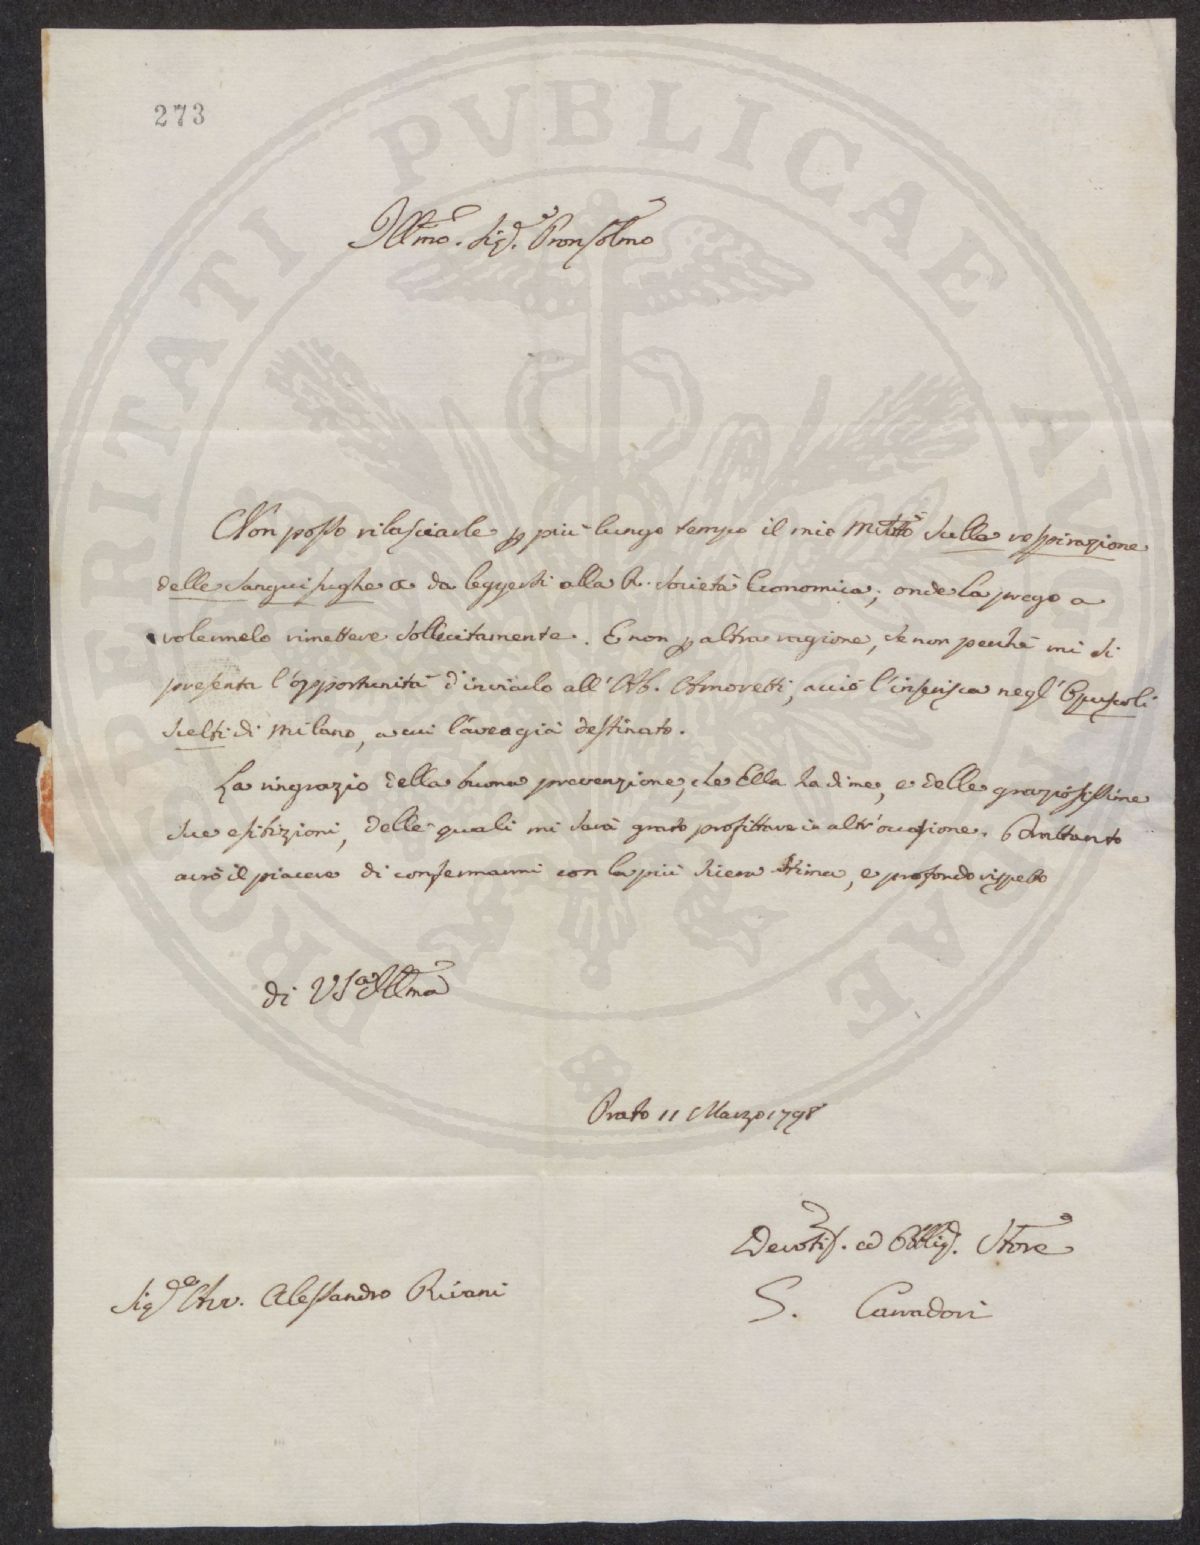 273
Illmo. Sig.e Pron Colmo
Non posso rilasciarle p più lungo tempo il mio Mstto sulla respirazione
delle Sanguisughe da leggersi alla R. Società Economica; onde La prego a
volermelo rimettere sollecitamente. E non p altra ragione, se non perchè mi si
presenta l'opportunità d'inviarlo all'Ab. Amoretti, acciò l'inserisca negl'Opuscoli
scelti di Milano, a cui l'avea già destinato.
La ringrazio della buona prevenzione, che Ella ha di me, e delle graziosissime
sue esibizioni, delle quali mi sarà grato profittare in altr'occasione. Intanto
avrò il piacere di confermarmi con la più sicera stima, e profondo rispetto
di VSa Illma
Prato 11 Marzo 1798
Devotis. ed Obblig. Store
S. Carradori
Sig.e Avv. Alessandro Rivani
PROSPERITATI PVBLICAE AVGENDAE